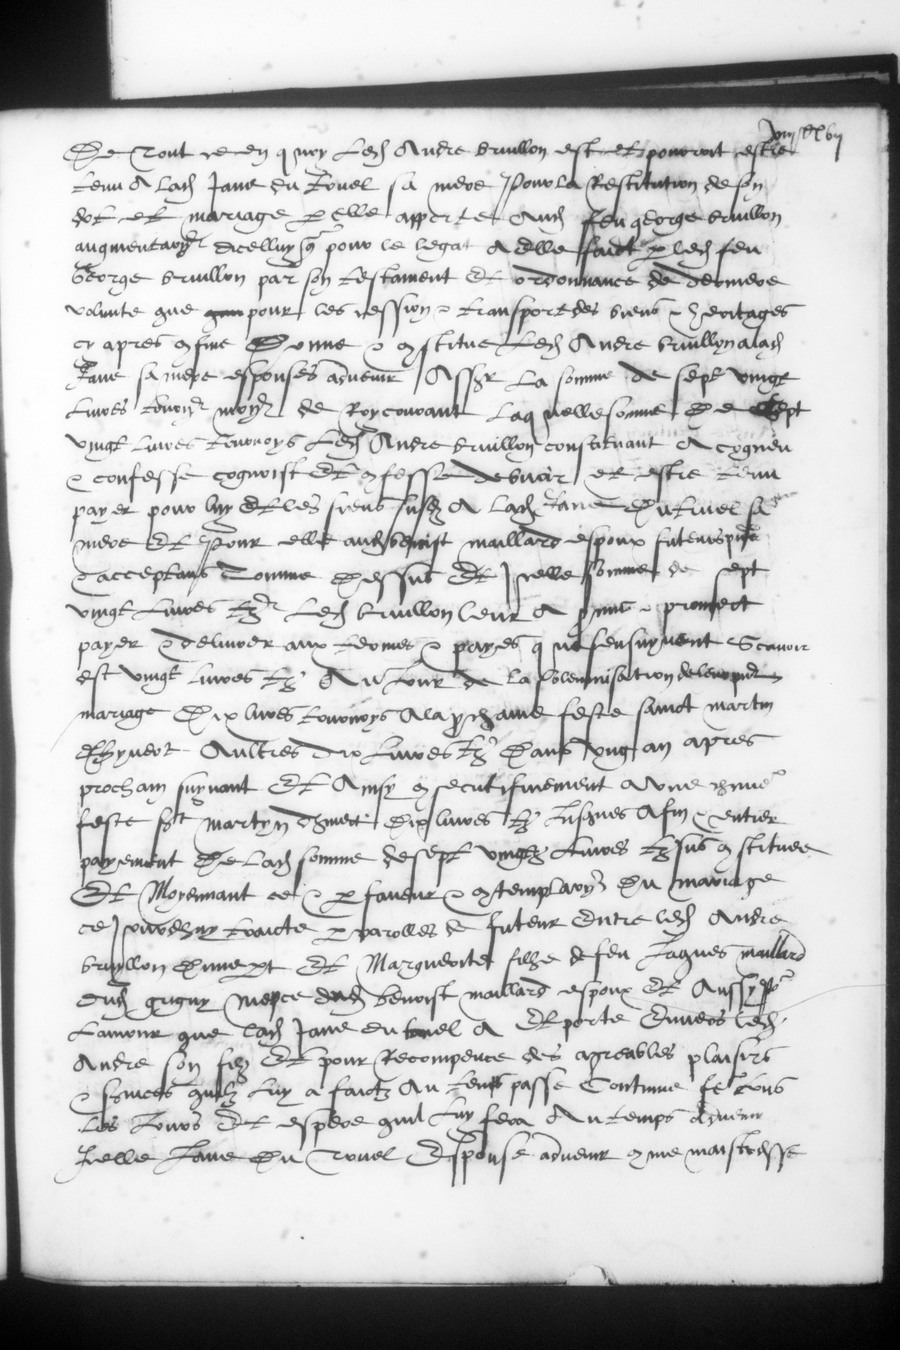 De tout ce en quoy led Andre bruillon est et pouroit estre
tenu A lad Jane du Tovel sa mere Pour la Restitution de son
dot et mariage p elle apporte Aud feu george bruillon
augmentaon dicelluy q pour le legat A Elle faict p led feu
George bruillon par son testament Et ordonnance de derniere
volunte que pour les cession & transport des biens & heritages
cy apres Donne & constitue led Andre bruillon a lad
Jane sa mere espouses advenir La somme de sept vingt
livres tournoys monoye de Roy courant laquelle somme De sept
vingt livres tournoys led Andre bruillon constituant A cogneu
& confesse cognoist Et confesse debvoir et estre tenu
payer pour luy Et les siens susd A lad Jane Du tovel sa
mere Et Pour elle aud benoist maillard espoux futeurs pnt
& acceptans Comme Dessus Et Icelle somme de sept
vingt livres tz led bruillon leur A promis & promect
payer & delivrer aux termes & payes que sensuyvent Scavoir
est vingt livres tz Au Jour de la solemnisation de leur pnt
mariage Dix livres tournoys A la prochaine feste sainct martin
Dhyvert Aultres dix livres tz Dans ung an apres
prochain suyvant Et Ainsy consecutifvement A une chune
feste sainct martyn dhivert Dix livres tz Jusques A fin & entier
payement De lad somme de sept vingtz livres tz sus constituee
Et Moyennant ce & p faveur & contemplaon Du mariage
ce Jourdhuy traicte p parolles de futeur Entre led Andre
bruyllon Dune pt Et Marguerite filhe de feu Jaques maillard
dud gugny niepce dud benoist maillard espoux Et Aussy pr
Lamour que lad Jane du tovel A Et porte Envers led
Andre son filz Et pour Recompence des agreables plaisirs
& services quilz luy a faictz Au temps passe Continue fe tous
les Jours Et espere quil luy fera Au temps advenir
Icelle Jane Du Tovel Espouse advenir comme maistresse